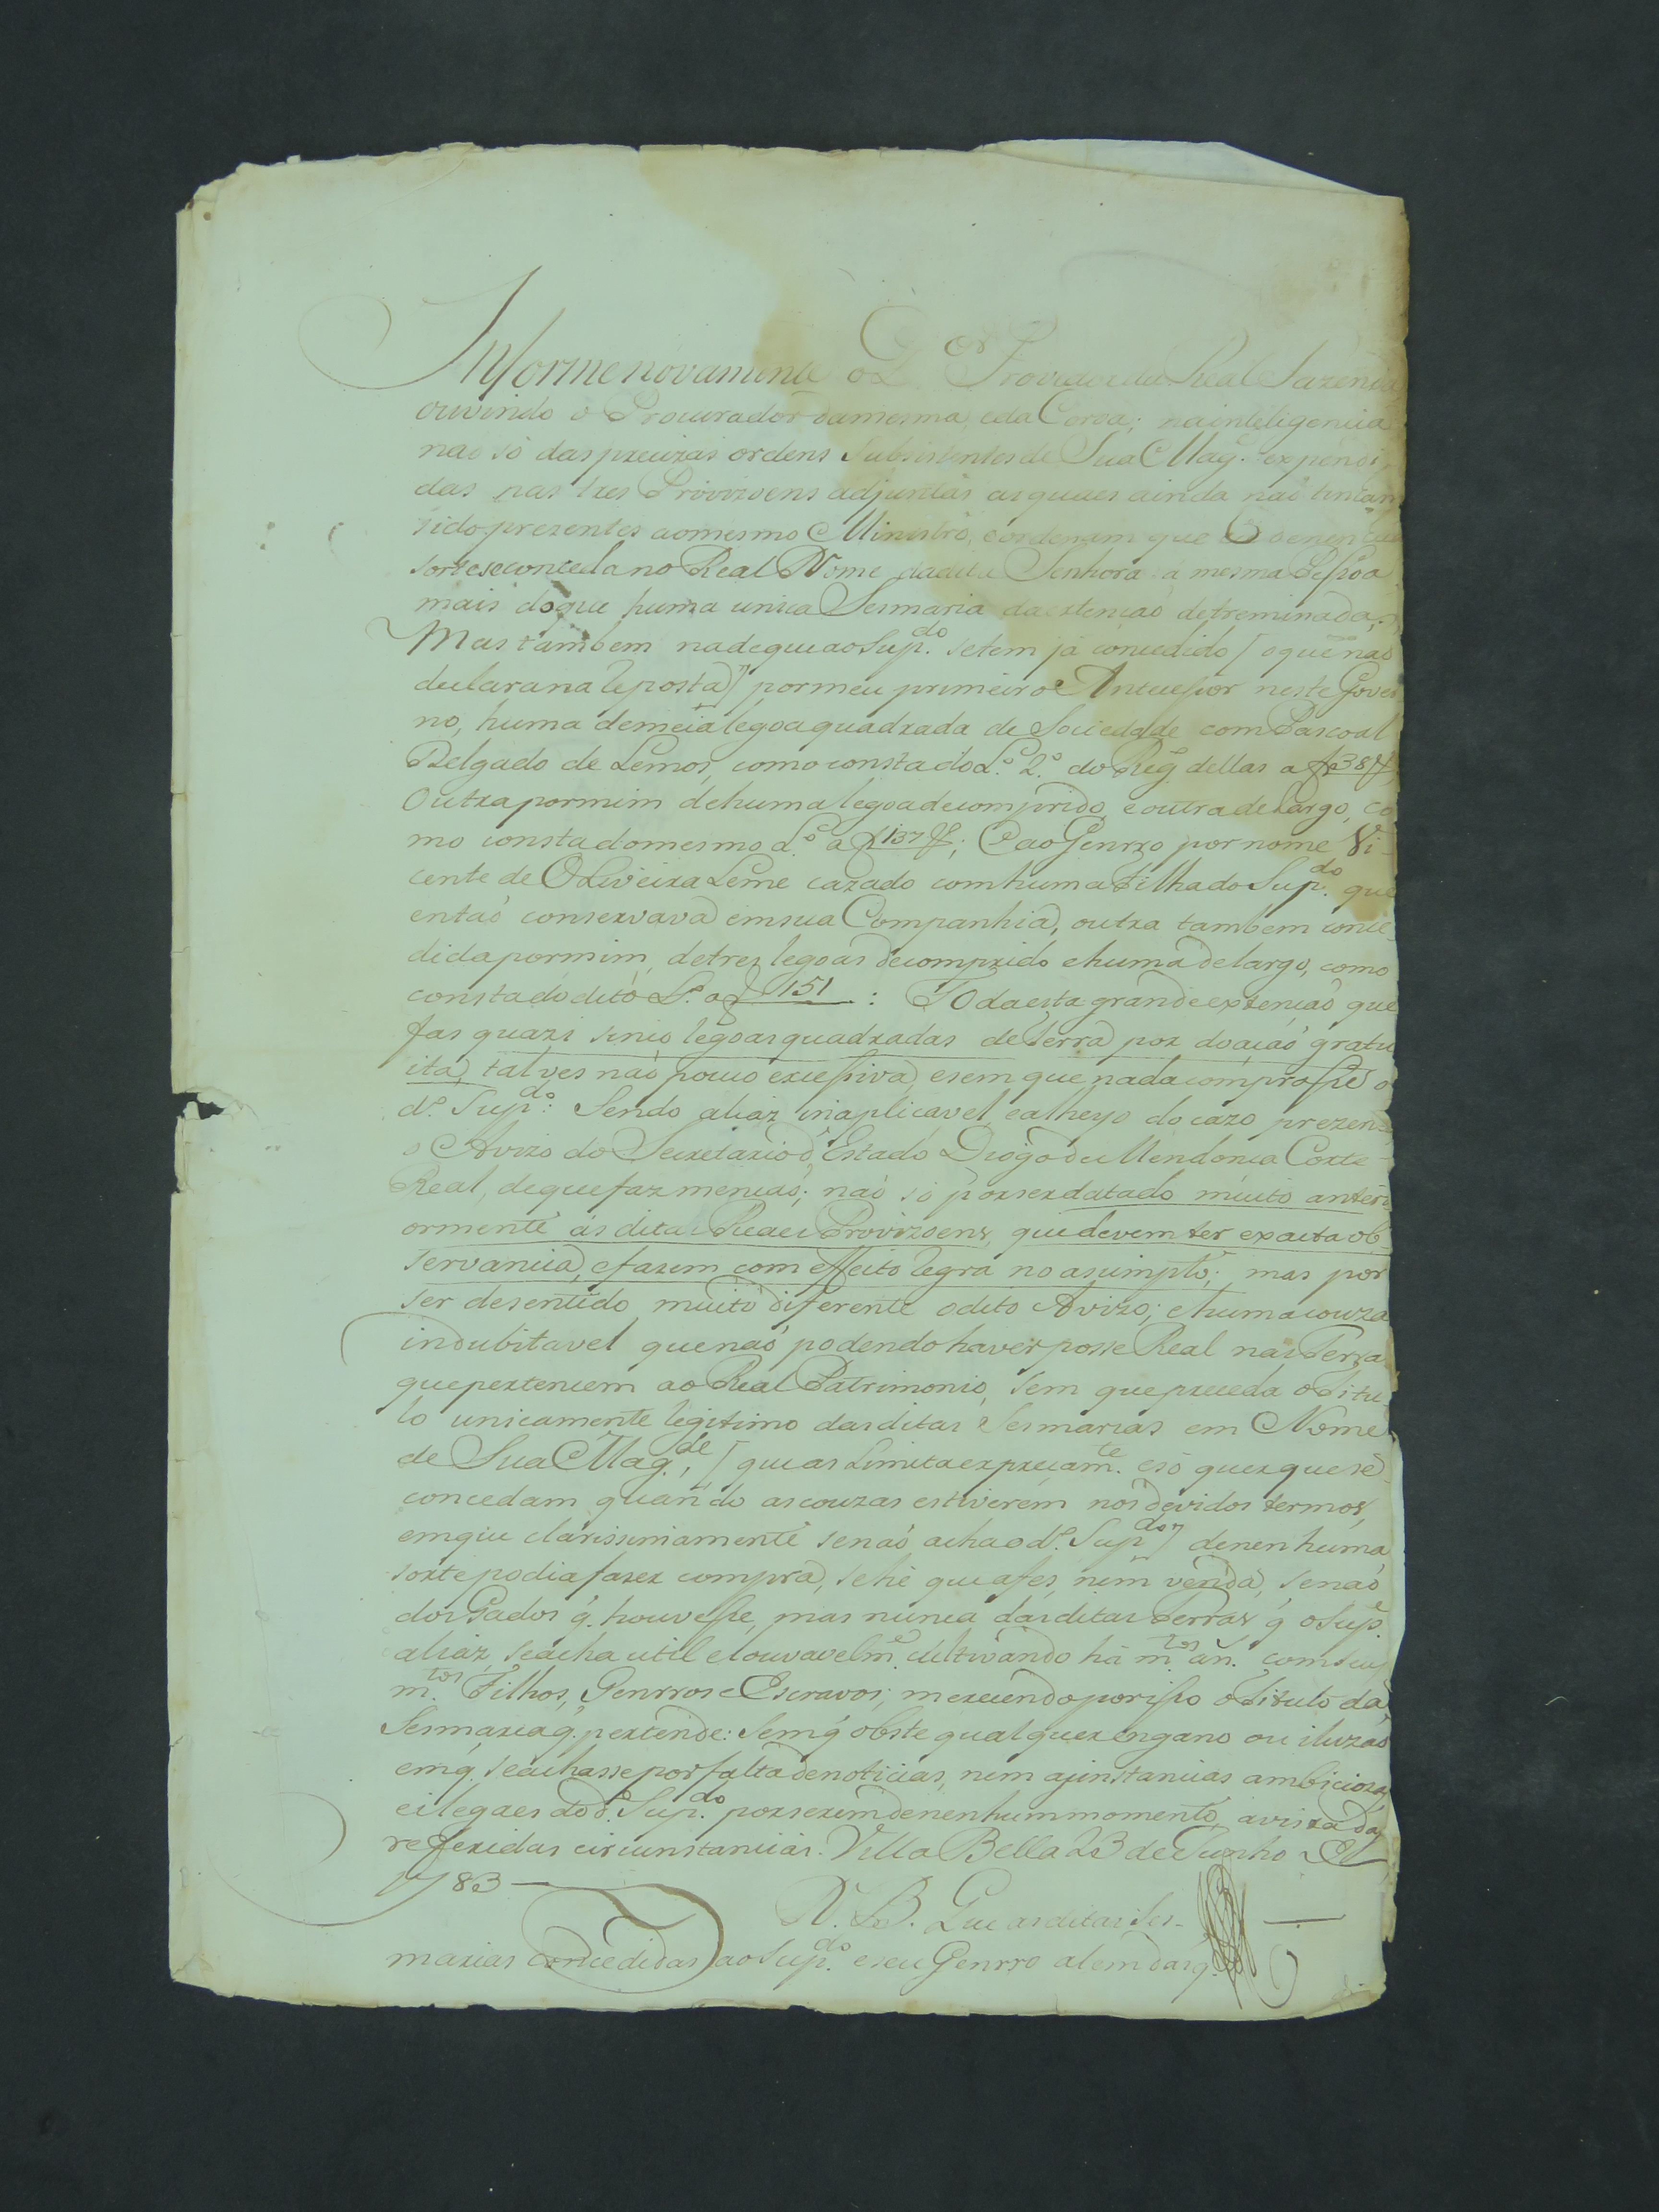 Informe novamente o D.or Provedor da Real Fazenda
ouvindo o Procurador da mesma, e da Coroa; na inteligencia
naõ só das precizas ordens subsistentes de Sua Mag.e expendi-
das nas tres Provizoens adjuntas as quaes ainda naõ tinham
sido prezentes ao mesmo Ministro, e ordenam que de nenhua
sorte se conceda no Real Nome da dita Senhora á mesma Pessoa
mais doque huma unica Sesmaria da extençaõ detreminada;
Mas tambem na de que ao Sup.do se tem já concedido [o que naõ
declara na reposta] por meu primeiro Antecessor neste Gover
no, huma de meia legoa quadrada de Sociedade com Pascoal
Delgado de Lemos, como consta do L.o 2.o do Reg.o dellas a f 38
Outra por mim de huma legoa de comprido, e outra de largo, co
mo consta do mesmo L.o a f 137; E ao Genrro por nome Vi-
cente de Oliveira Leme cazado com huma Filha do Sup.do que
entaõ conservava em sua Companhia, outra tambem conce-
dida por mim, de tres legoas de comprido e huma de largo, como
consta do dito L.o a f 151: Toda esta grande extençaõ que
fas quazi sinco legoas quadradas de Terra por doaçaõ gratu
ita, talves naõ pouco excessiva, e sem que nada comprasse o
d.o Sup.do: Sendo aliaz inaplicavel, e alheyo do cazo prezente
o Avizo do Secretario d'Estado Diogo de Mendonca Corte-
Real, de que faz mencaõ; naõ só por ser datado muito anteri
ormente ás ditas Reaes Provizoens, que devem ter exacta ob-
servancia, e fazem com effeito regra no asumpto; mas por
ser de sentido muito diferente o dito Avizo; e huma couza
indubitavel que naõ podendo haver posse Real nas Terras
que pertencem ao Real Patrimonio, sem que preceda o Titu-
lo unicamente legitimo das ditas Sesmarias em Nome
de Sua Mag.de, [que as Limita expreçam.te e só quer que se
concedam quando as couzas estiverem nos devidos termos,
em que clarissimamente se naõ acha o d.o Sup.do] de nenhuma
sorte podia fazer compra, se he que a fes, nem venda, se naõ
dos Gados q. houvesse, mas nunca das ditas Terras q o Sup.e
aliaz, se acha util e louvavelm.e cultivando há m.tos an. com seus
m.tos Filhos, Genrros e Escravos; merecendo por isso o Titulo da
Sesmaria q. pertende: Sem q obste qualquer engano ou iluzaõ
em q. se achasse por falta de noticias, nem as instancias ambiciozas,
e ilegaes do d.o Sup.do por serem de nenhum momento, a vista das
referidas circunstancias. Villa Bella 23 de Junho de
1783
N. B. Que as ditas Ses-
marias concedidas ao Sup.do e seu Genrro alem das q.